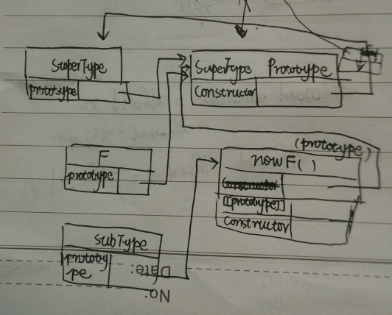 SuperType
prototype
SuperType Prototype
Constructor
F
prototype
(prototype)
new F( )
constructor
[[prototype]]
Constructor
SubType
prototy
pe
Date:
No: